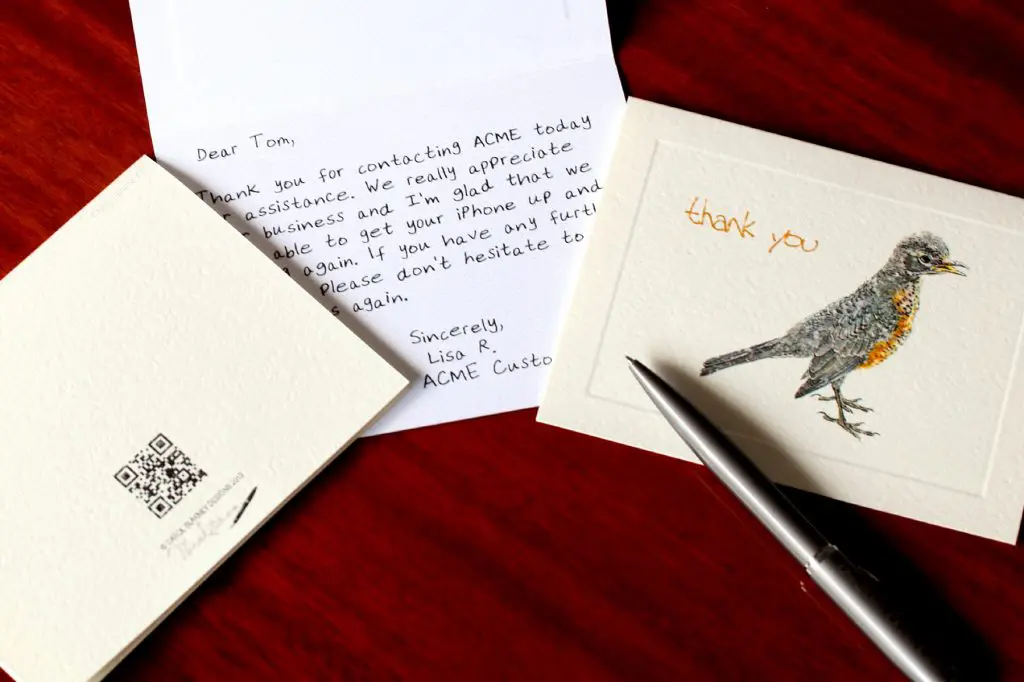 Dear Tom,
Thank you for contacting ACME today
r assistance. We really appreciate
business and I'm glad that we
able to get your iPhone up and
again. If you have any furth
Please don't hesitate to
s again.
Sincerely,
Lisa R.
ACME Custo
thank you